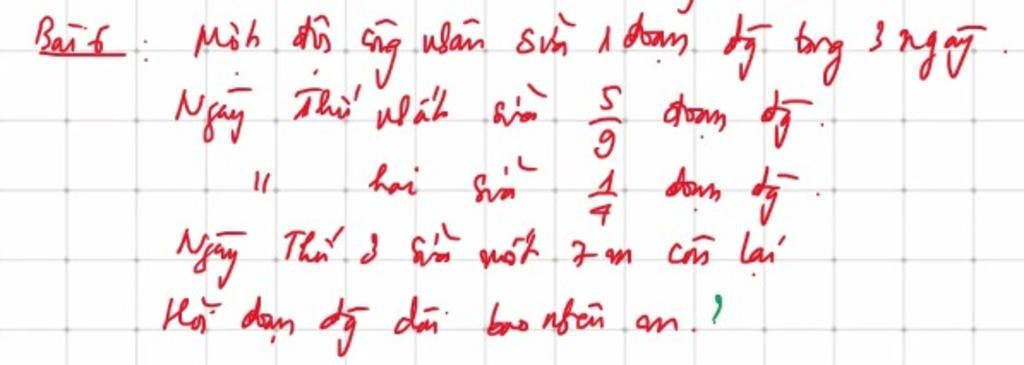 Bài 6 : Một đội công nhân sửa 1 đoạn đg trong 3 ngày.
Ngày Thứ nhất sửa 5/9 đoạn đg.
" hai sửa 1/4 đoạn đg.
Ngày Thứ 3 sửa nốt 7 m còn lại
Hỏi đoạn đg dài bao nhiêu m. ?